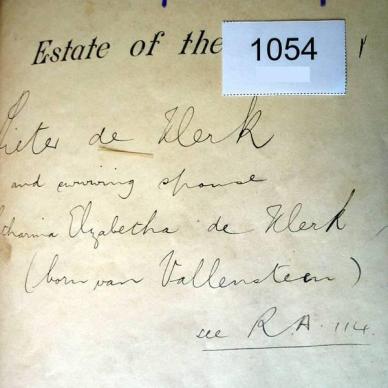 Estate of the
1054
Pieter de Klerk
and surviving spouse
Catharina Elzabetha de Klerk
(born van Vallensteen)
see R.A. 114.